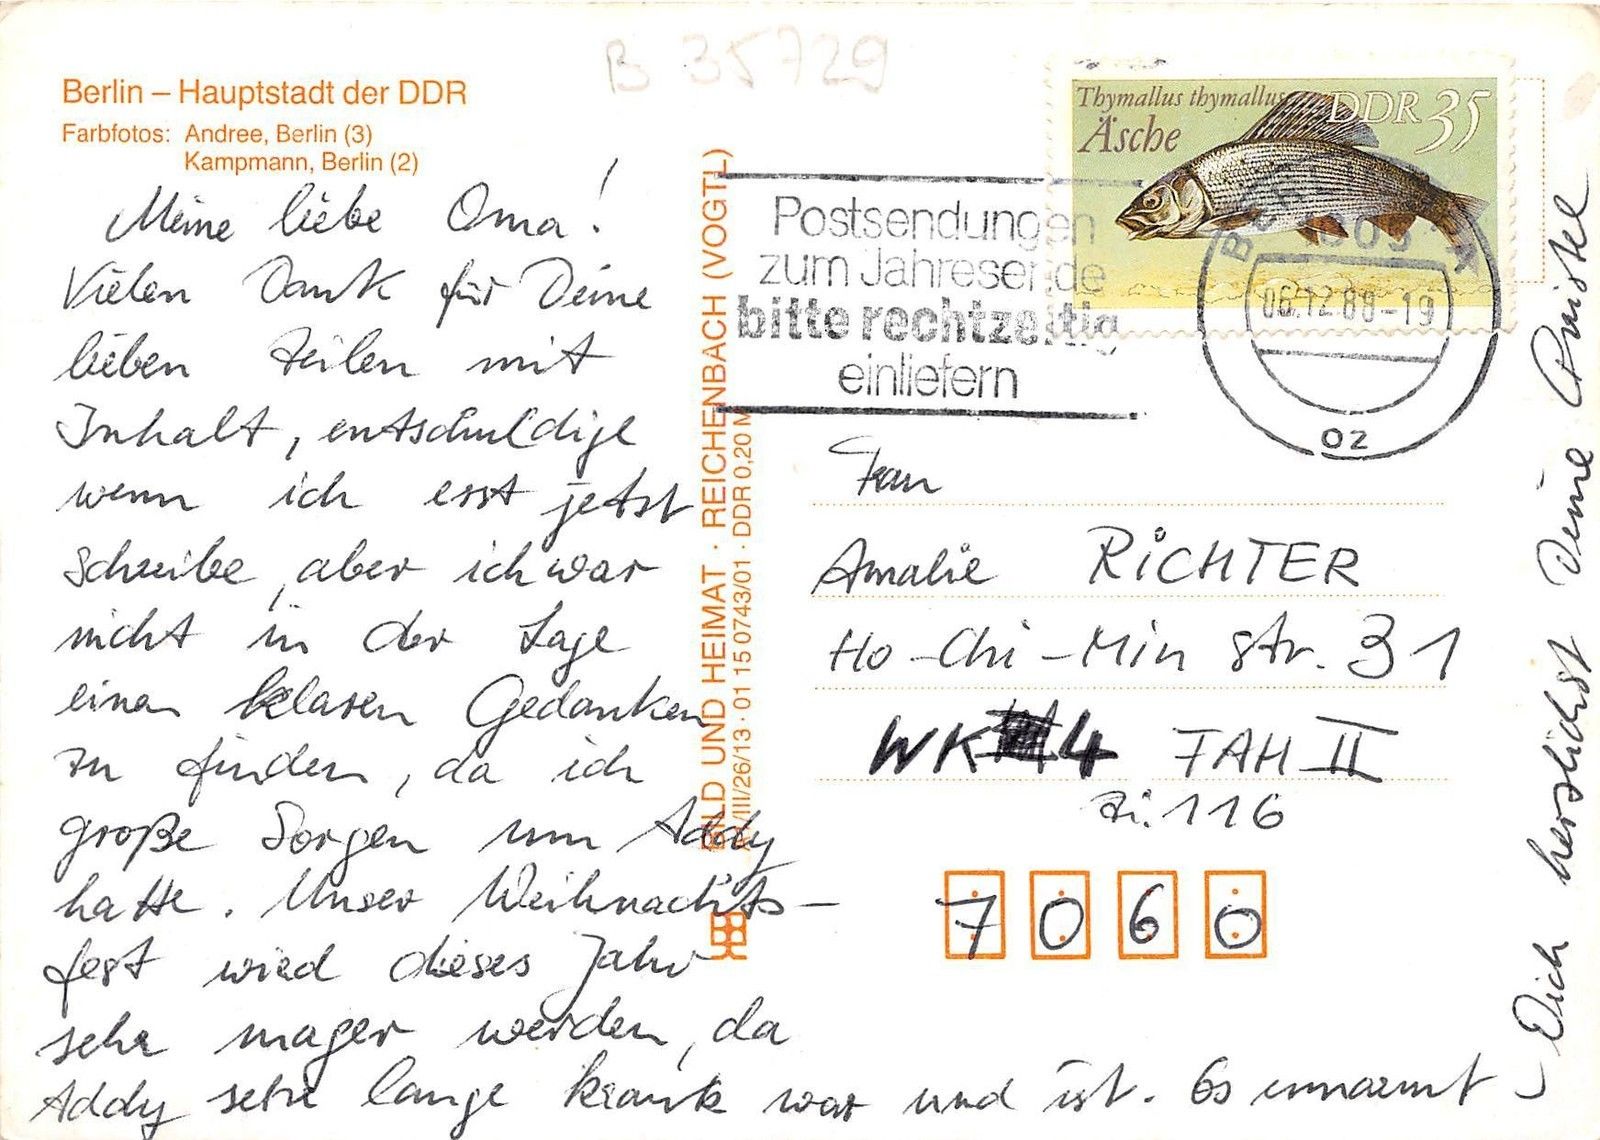 B 35729
Berlin – Hauptstadt der DDR
Farbfotos: Andree, Berlin (3)
Kampmann, Berlin (2)
Meine liebe Oma!
Vielen Dank für Deine
lieben Zeilen mit
Inhalt, entschuldige
wenn ich erst jetzt
schreibe, aber ich war
nicht in der Lage
einen klaren Gedanken
zu finden, da ich
große Sorgen um Addy
hatte. Unser Weihnachts-
fest wird dieses Jahr
sehr mager werden, da
Addy sehr lange krank war und ist. Es umarmt
Dich herzlichst Deine Christel
BILD UND HEIMAT · REICHENBACH (VOGTL)
/III/26/13 · 01 15 0743/01 · DDR 0,20 M
Thymallus thymallus
Äsche
DDR 35
Postsendungen
zum Jahresende
bitte rechtzeitig
einliefern
06.12.88-19
oz
Frau
Amalie RICHTER
Ho-Chi-Min Str. 31
WK 4 FAH II
Zi. 116
7060